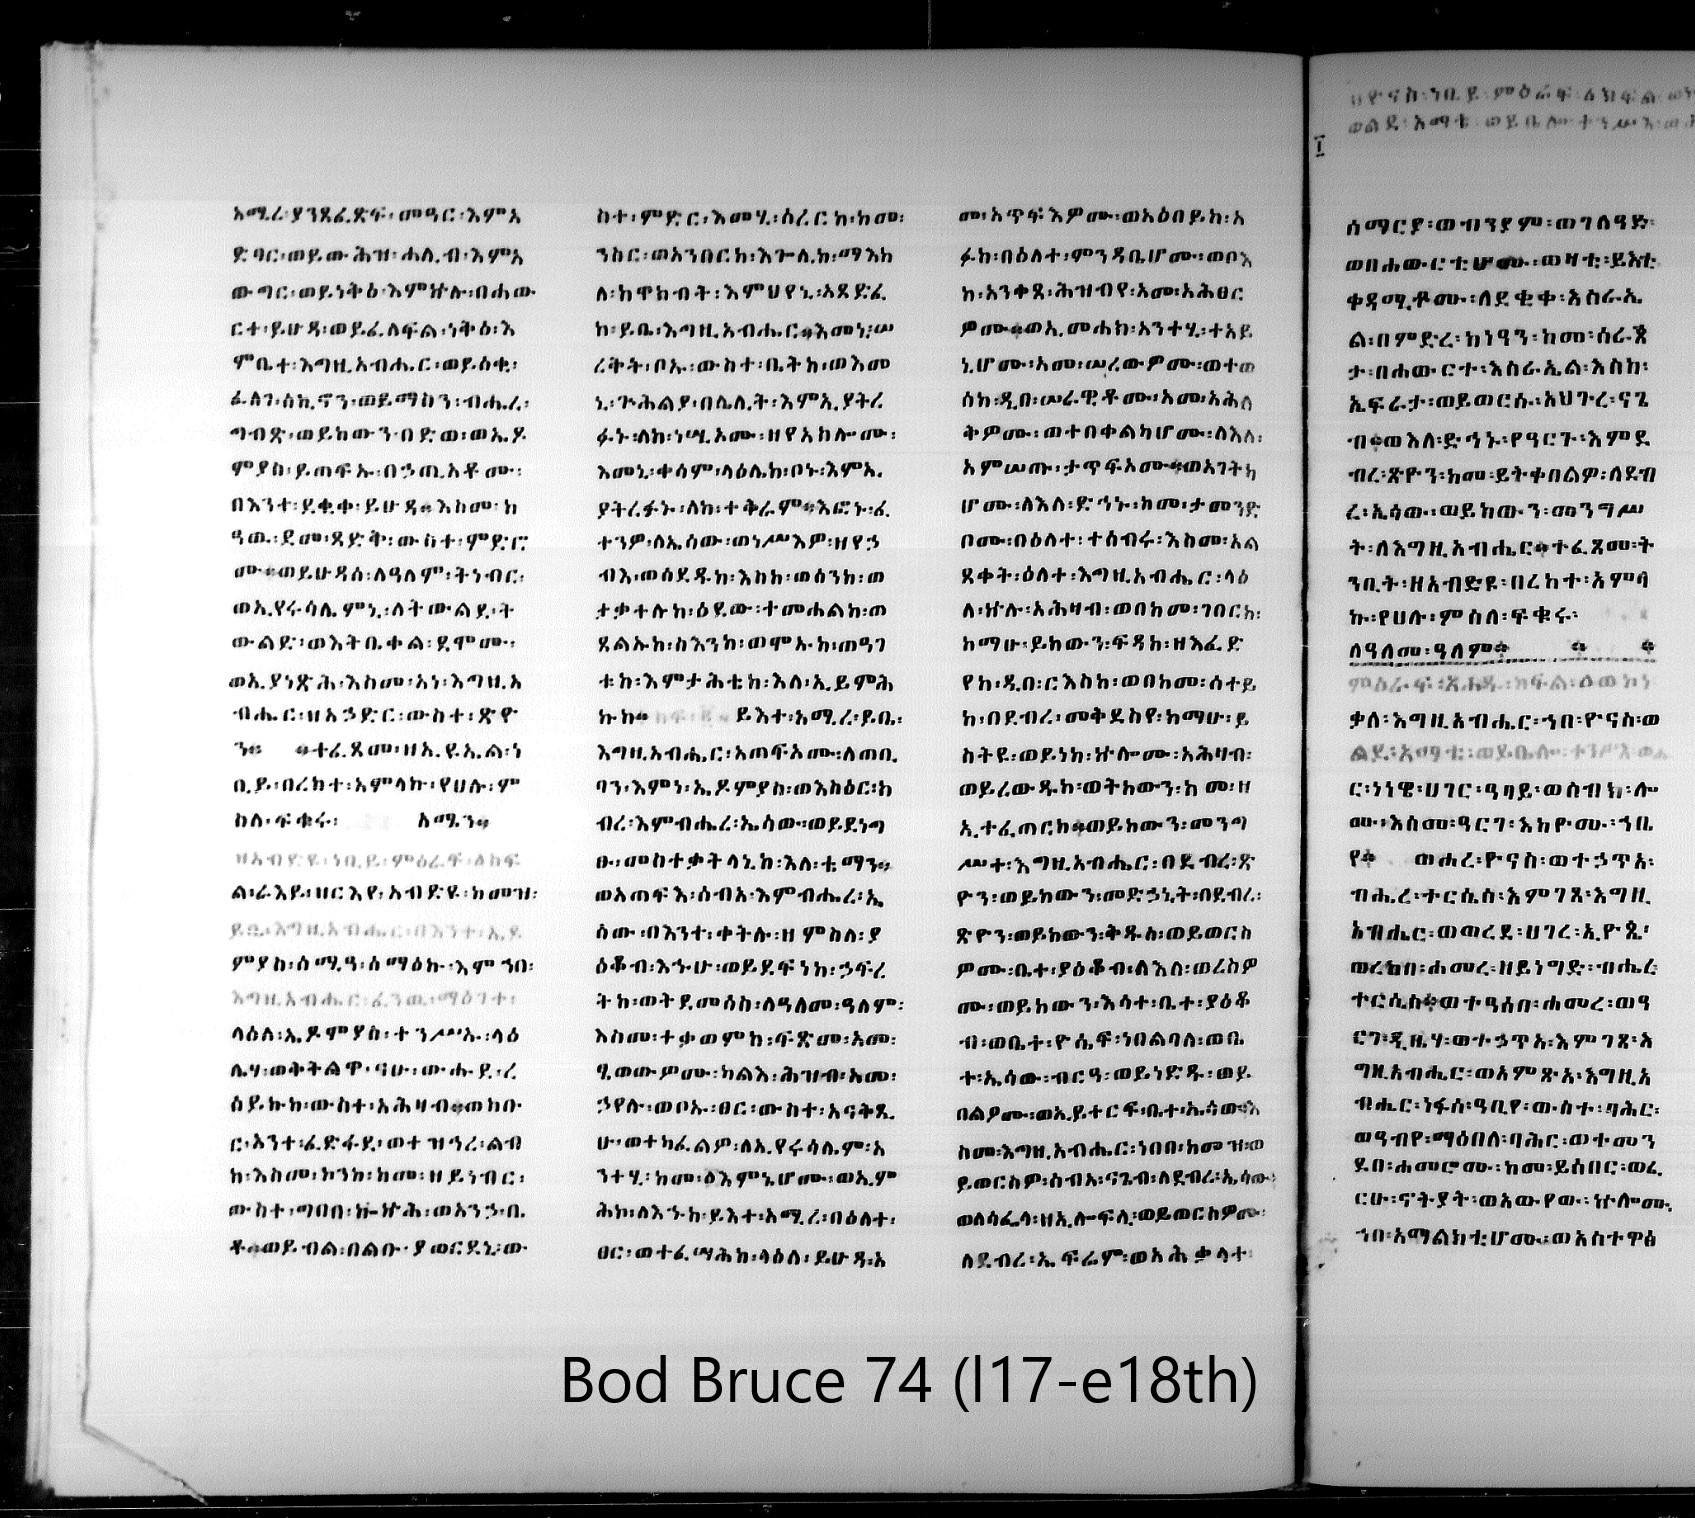 አሜሪ፡ያንጸፈጽፍ፡መዓር፡እምአ
ድባር፡ወይውሕዝ፡ሐሊብ፡እምአ
ውግር፡ወይነቅዕ፡እምኵሉ፡በሐው
ርተ፡ይሁዳ፡ወይፈለፍል፡ነቅዕ፡እ
ምቤተ፡እግዚአብሔር፡ወይሰቂ፡
ፈለገ፡ሰኪኖን፡ወይማስን፡ብሔረ፡
ግብጽ፡ወይከውን፡በድወ፡ወኤዶ
ምያስ፡ይጠፍኡ፡በኃጢአቶሙ፡
በእንተ፡ደቂቀ፡ይሁዳ።እስመ፡ከ
ዓዉ፡ደመ፡ጻድቅ፡ውስተ፡ምድሮ
ሙ።ወይሁዳሰ፡ለዓለም፡ትነብር፡
ወኢየሩሳሌምኒ፡ለትውልደ፡ት
ውልድ፡ወእትቤቀል፡ደሞሙ፡
ወኢያነጽሕ፡እስመ፡አነ፡እግዚአ
ብሔር፡ዘአኃድር፡ውስተ፡ጽዮ
ን። ።ተፈጸመ፡ዘኢዩኤል፡ነ
ቢይ፡በረከተ፡አምላኩ፡የሀሉ፡ም
ስለ፡ፍቁሩ፡ አሜን።
ዘአብድዩ፡ነቢይ፡ምዕራፍ፡ ክፍ
ል፡ራእይ፡ዘርእየ፡አብድዩ፡ከመዝ፡
ይቤ፡እግዚአብሔር፡በእንተ፡ኤዶ
ምያስ፡ሰሚዓ፡ሰማዕኩ፡እምኀበ፡
እግዚአብሔር፡ፈነወ፡ማዕገተ፡
ላዕለ፡ኤዶምያስ፡ተንሥኡ፡ላዕ
ሌሃ፡ወቅትልዋ፡ናሁ፡ውሑደ፡ረ
ሰይኩከ፡ውስተ፡አሕዛብ።ወክቡ
ር፡አንተ፡ፈድፋደ፡ወተዝኅረ፡ልብ
ከ፡እስመ፡ከንከ፡ከመ፡ዘይነብር፡
ውስተ፡ግበበ፡ኰኵሕ፡ወአንኃ፡ቤ
ቶ።ወይብል፡በልቡ፡ያወርደኒ፡ው
ስተ፡ምድር፡እመሂ፡ሰረርከ፡ከመ፡
ንስር፡ወአንበርከ፡እጕሊከ፡ማእከ
ለ፡ከዋክብት፡እምህየኒ፡አጸድፈ
ከ፡ይቤ፡እግዚአብሔር።እመኒ፡ሠ
ረቅት፡ቦኡ፡ውስተ፡ቤትከ፡ወእመ
ኒ፡ጕሕልያ፡በሌሊት፡እምኢያትረ
ፉኑ፡ለከ፡ነሢአሙ፡ዘየአክሎሙ፡
እመኒ፡ቀሳም፡ላዕሌከ፡ቦኡ፡እምኢ
ያትረፋኑ፡ለከ፡ተቅራም።እፎኑ፡ፈ
ተንዎ፡ለኤሳው፡ወነሥእዎ፡ዘየኃ
ብእ፡ወሰደዱከ፡እስከ፡ወሰንከ፡ወ
ታቃተሉከ፡ዕደው፡ተመሐልከ፡ወ
ጸልኡከ፡ስእንከ፡ወሞኡከ፡ወዓገ
ቱከ፡እምታሕቴከ፡እለ፡ኢይምሕ
ኩከ። ይእተ፡አሚረ፡ይቤ፡
እግዚአብሔር፡አጠፍአሙ፡ለጠቢ
ባን፡እምነ፡ኤዶምያስ፡ወእስዕር፡ከ
ብረ፡እምብሔረ፡ኤሳው፡ወይደነግ
ፁ፡መስተቃትላኒከ፡እለ፡ቴማን።
ወአጠፍእ፡ሰብአ፡እምብሔረ፡ኤ
ሳው፡በእንተ፡ቀትሉ፡ዘምስለ፡ያ
ዕቆብ፡እኁሁ፡ወይደፍነከ፡ኃፍረ
ትከ፡ወትደመሰስ፡ለዓለመ፡ዓለም፡
እስመ፡ተቃወምከ፡ፍጽመ፡አመ፡
ፄወውዎሙ፡ካልእ፡ሕዝብ፡አመ፡
ኃየሉ፡ወቦኡ፡ፀር፡ውስተ፡አናቅጺ
ሁ፡ወተካፈልዎ፡ለኢየሩሳሌም፡አ
ንተሂ፡ከመ፡፩እምኔሆሙ፡ወኢም
ሕከ፡ለእኁከ፡ይእተ፡አሚረ፡በዕለተ፡
ፀር፡ወተፈሣሕከ፡ላዕለ፡ይሁዳ፡አ
መ፡አጥፍእዎሙ፡ወአዕበይከ፡አ
ፉከ፡በዕለተ፡ምንዳቤሆሙ፡ወቦእ
ከ፡አንቀጸ፡ሕዝብየ፡አመ፡አሕፀር
ዎሙ።ወኢመሐክ፡አንተሂ፡ተአይ
ኒሆሙ፡አመ፡ሠረውዎሙ፡ወተወ
ሰከ፡ዲበ፡ሠራዊቶሙ፡አመ፡አሕለ
ቅዎሙ፡ወተበቀልካሆሙ፡ለእለ፡
አምሠጡ፡ታጥፍአሙ።ወአገትካ
ሆሙ፡ለእለ፡ድኅኑ፡ከመ፡ታመንድ
ቦሙ፡በዕለተ፡ተሰብሩ፡እስመ፡አል
ጸቀት፡ዕለተ፡እግዚአብሔር፡ላዕ
ለ፡ኵሉ፡አሕዛብ፡ወበከመ፡ገበርከ፡
ከማሁ፡ይከውን፡ፍዳከ፡ዘእፈድ
የከ፡ዲበ፡ርእስከ፡ወበከመ፡ሰተይ
ከ፡በደብረ፡መቅደስየ፡ከማሁ፡ይ
ስትዩ፡ወይነከ፡ኵሎሙ፡አሕዛብ፡
ወይረውዱከ፡ወትከውን፡ከመ፡ዘ
ኢተፈጠርከ።ወይከውን፡መንግ
ሥተ፡እግዚአብሔር፡በደብረ፡ጽ
ዮን፡ወይከውን፡መድኃኒት፡በደብረ፡
ጽዮን፡ወይከውን፡ቅዱስ፡ወይወርስ
ዎሙ፡ቤተ፡ያዕቆብ፡ለእለ፡ወረስዎ
ሙ፡ወይከውን፡እሳተ፡ቤተ፡ያዕቆ
ብ፡ወቤተ፡ዮሴፍ፡ነበልባለ፡ወቤ
ተ፡ኤሳው፡ብርዓ፡ወይነድዱ፡ወይ
በልዎሙ፡ወኢይተርፍ፡ቤተ፡ኤሳው።እ
ስመ፡እግዚአብሔር፡ነበበ፡ከመዝ፡ወ
ይወርስዎ፡ሰብአ፡ናጌብ፡ለደብረ፡ኤሳው፡
ወለሳፌላ፡ዘኢሎፍሊ፡ወይወርስዎሙ፡
ለደብረ፡ኤፍሬም፡ወአሕቃላተ፡
ዘዮናስ፡ነቢይ፡ምዕራፍ፡ ክፍል፡
ወልደ፡አማቴ፡ወይቤሎ፡ተንሥእ፡
ሰማርያ፡ወብንያም፡ወገለዓድ፡
ወበሐውርቲሆሙ፡ወዛቲ፡ይእቲ
ቀዳሚቶሙ፡ለደቂቀ፡እስራኤ
ል፡በምድረ፡ከነዓን፡ከመ፡ሰራጰ
ታ፡በሐውርተ፡እስራኤል፡እስከ፡
ኤፍራታ፡ወይወርሱ፡አህጉረ፡ናጌ
ብ።ወእለ፡ድኅኑ፡የዓርጉ፡እምደ
ብረ፡ጽዮን፡ከመ፡ይትቀበልዎ፡ለደብ
ረ፡ኤሳው፡ወይከውን፡መንግሥ
ት፡ለእግዚአብሔር።ተፈጸመ፡ት
ንቢት፡ዘአብድዩ፡በረከተ፡አምላ
ኩ፡የሀሉ፡ምስለ፡ፍቁሩ፡
ለዓለመ፡ዓለም። ። ።
ምዕራፍ፡ ክፍል፡
ቃለ፡እግዚአብሔር፡ኀበ፡ዮናስ፡ወ
ልደ፡አማቴ፡ወይቤሎ፡ተንሥእ፡ወሑ
ር፡ነነዌ፡ሀገር፡ዓባይ፡ወስብክ፡ሎ
ሙ፡እስመ፡ዓርገ፡እከዮሙ፡ኀቤ
የ። ወሐረ፡ዮናስ፡ወተኃጥአ፡
ብሔረ፡ተርሴስ፡እምገጸ፡እግዚ
አብሔር፡ወወረደ፡ሀገረ፡ኢዮጴ፡
ወረከበ፡ሐመረ፡ዘይነግድ፡ብሔረ፡
ተርሴስ።ወተዓሰበ፡ሐመረ፡ወዓ
ርገ፡ዲቤሃ፡ወተኃጥአ፡እምገጸ፡እ
ግዚአብሔር፡ወአምጽአ፡እግዚአ
ብሔር፡ነፋሰ፡ዓቢየ፡ውስተ፡ባሕር፡
ወዓብየ፡ማዕበለ፡ባሕር፡ወተመን
ደበ፡ሐመሮሙ፡ከመ፡ይሰበር፡ወፈ
ርሁ፡ኖትያት፡ወአውየው፡ኵሎሙ፡
ኀበ፡አማልክቲሆሙ፡ወአስተዋፅ
Bod Bruce 74 (l17-e18th)